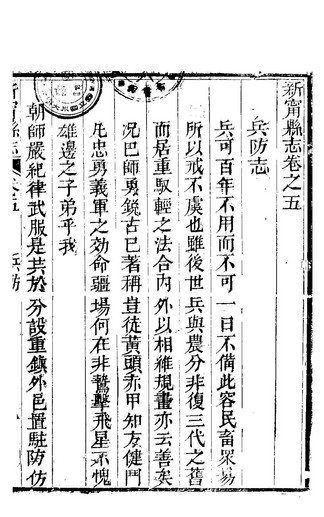 新甯縣志卷之五
兵防志
兵可百年不用而不可一日不備此容民畜眾易
所以戒不虞也雖後世兵與農分非復三代之舊
而居重馭輕之法合內外以相維規畫亦云善矣
况巴師勇銳古已著稱豈徒黃頭赤甲知友健鬥
凡忠勇義軍之効命疆場何在非鷙擊飛星不愧
雄邊之子弟乎我
朝師嚴紀律武服是共於分設重鎮外邑置駐防仿
新甯縣志 卷五 兵防